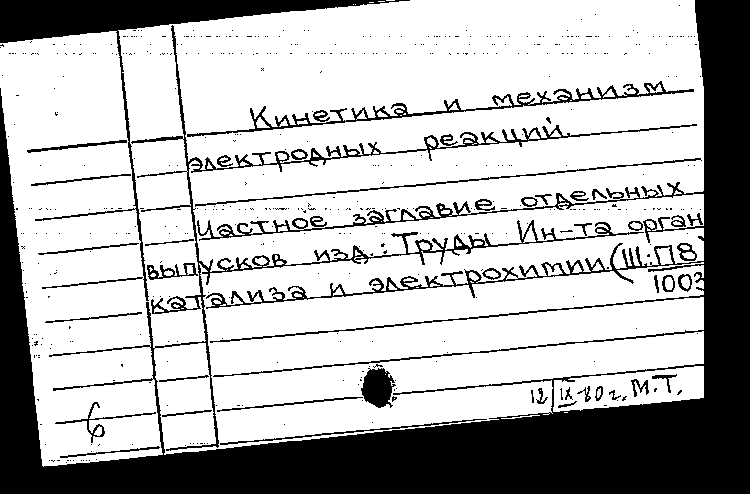 Кинетика и механизм
электродных реакций.
Частное заглавие отдельных
выпусков изд.: Труды Ин-та орган
катализа и электрохимии (III:П8)
1003
12/IX-80 г. М.Т.
6